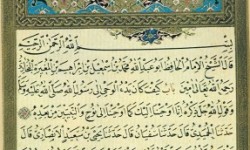 بسم الله الرحمن الرحيم
قال الشيخ الإمام الحافظ أبو عبد الله محمد بن إسماعيل بن إبراهيم بن المغيرة البخاري
رحمه الله تعالى آمين باب كيف كان بدء الوحي إلى رسول الله صلى الله عليه وسلم
وقول الله جل ذكره إنا أوحينا إليك كما أوحينا إلى نوح والنبيين من بعده
حدثنا الحميدي قال حدثنا سفيان قال حدثنا يحيى بن سعيد الأنصاري قال